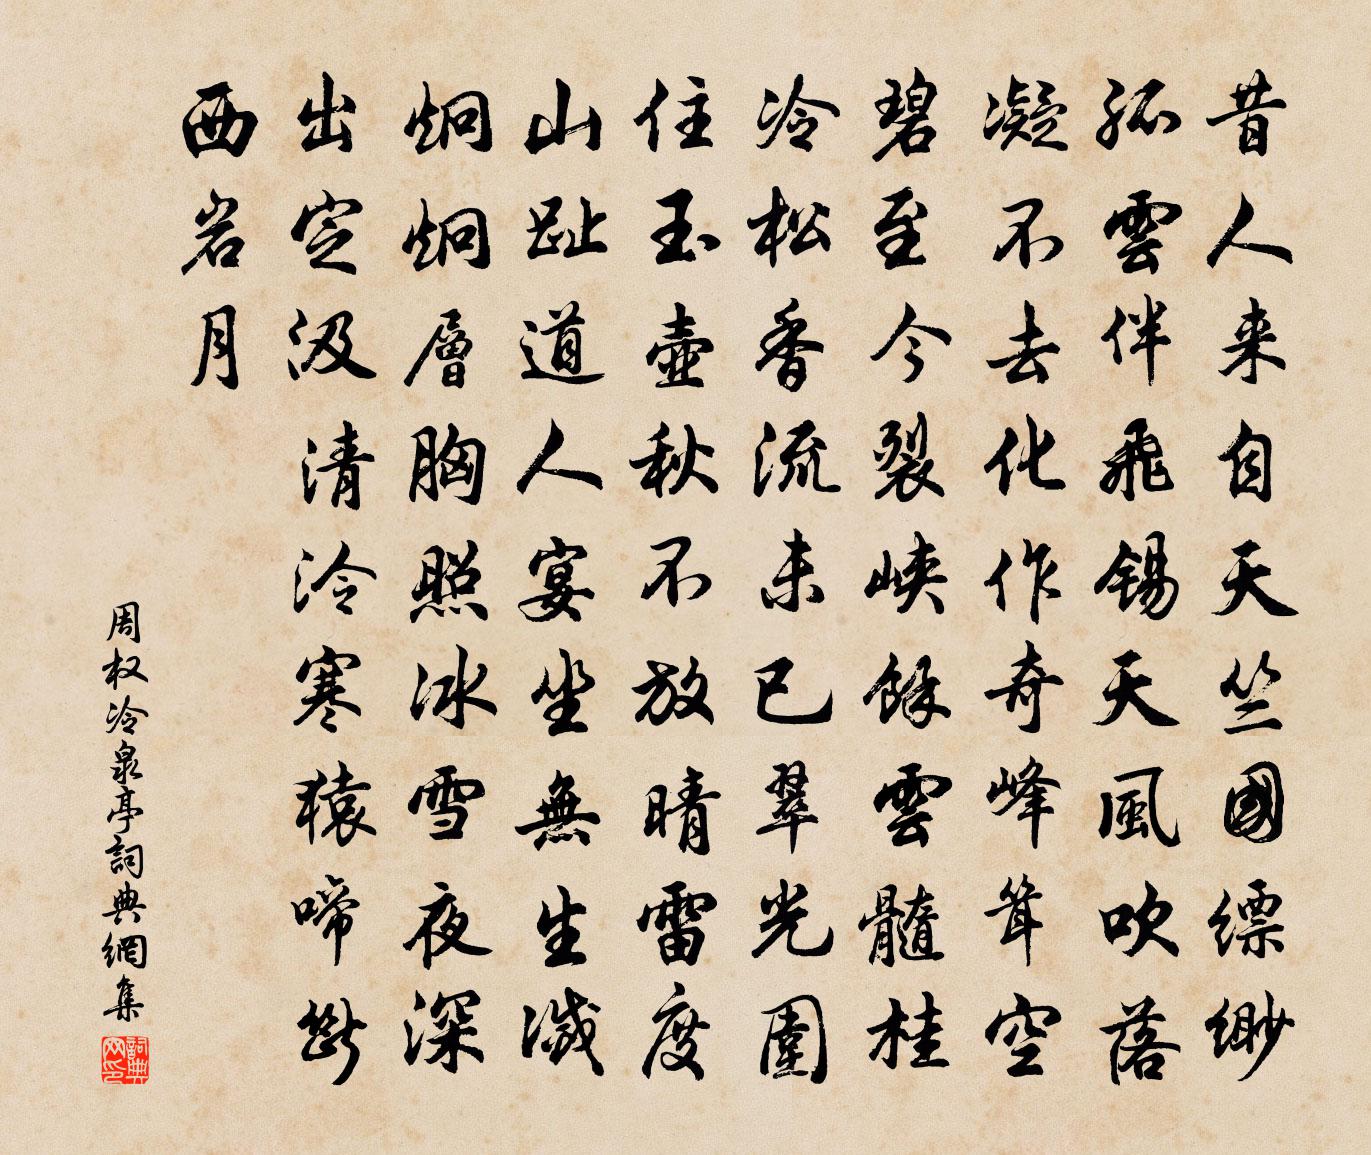 昔人来自天竺國縹緲
孤雲伴飛錫天風吹落
凝不去化作奇峰聳空
碧至今裂峽餘雲髓桂
冷松香流未已翠光圍
住玉壺秋不放晴雷度
山趾道人宴坐無生滅
炯炯層胸照冰雪夜深
出定汲清泠寒猿啼斷
西岩月
周权冷泉亭詞典網集
詞典网印